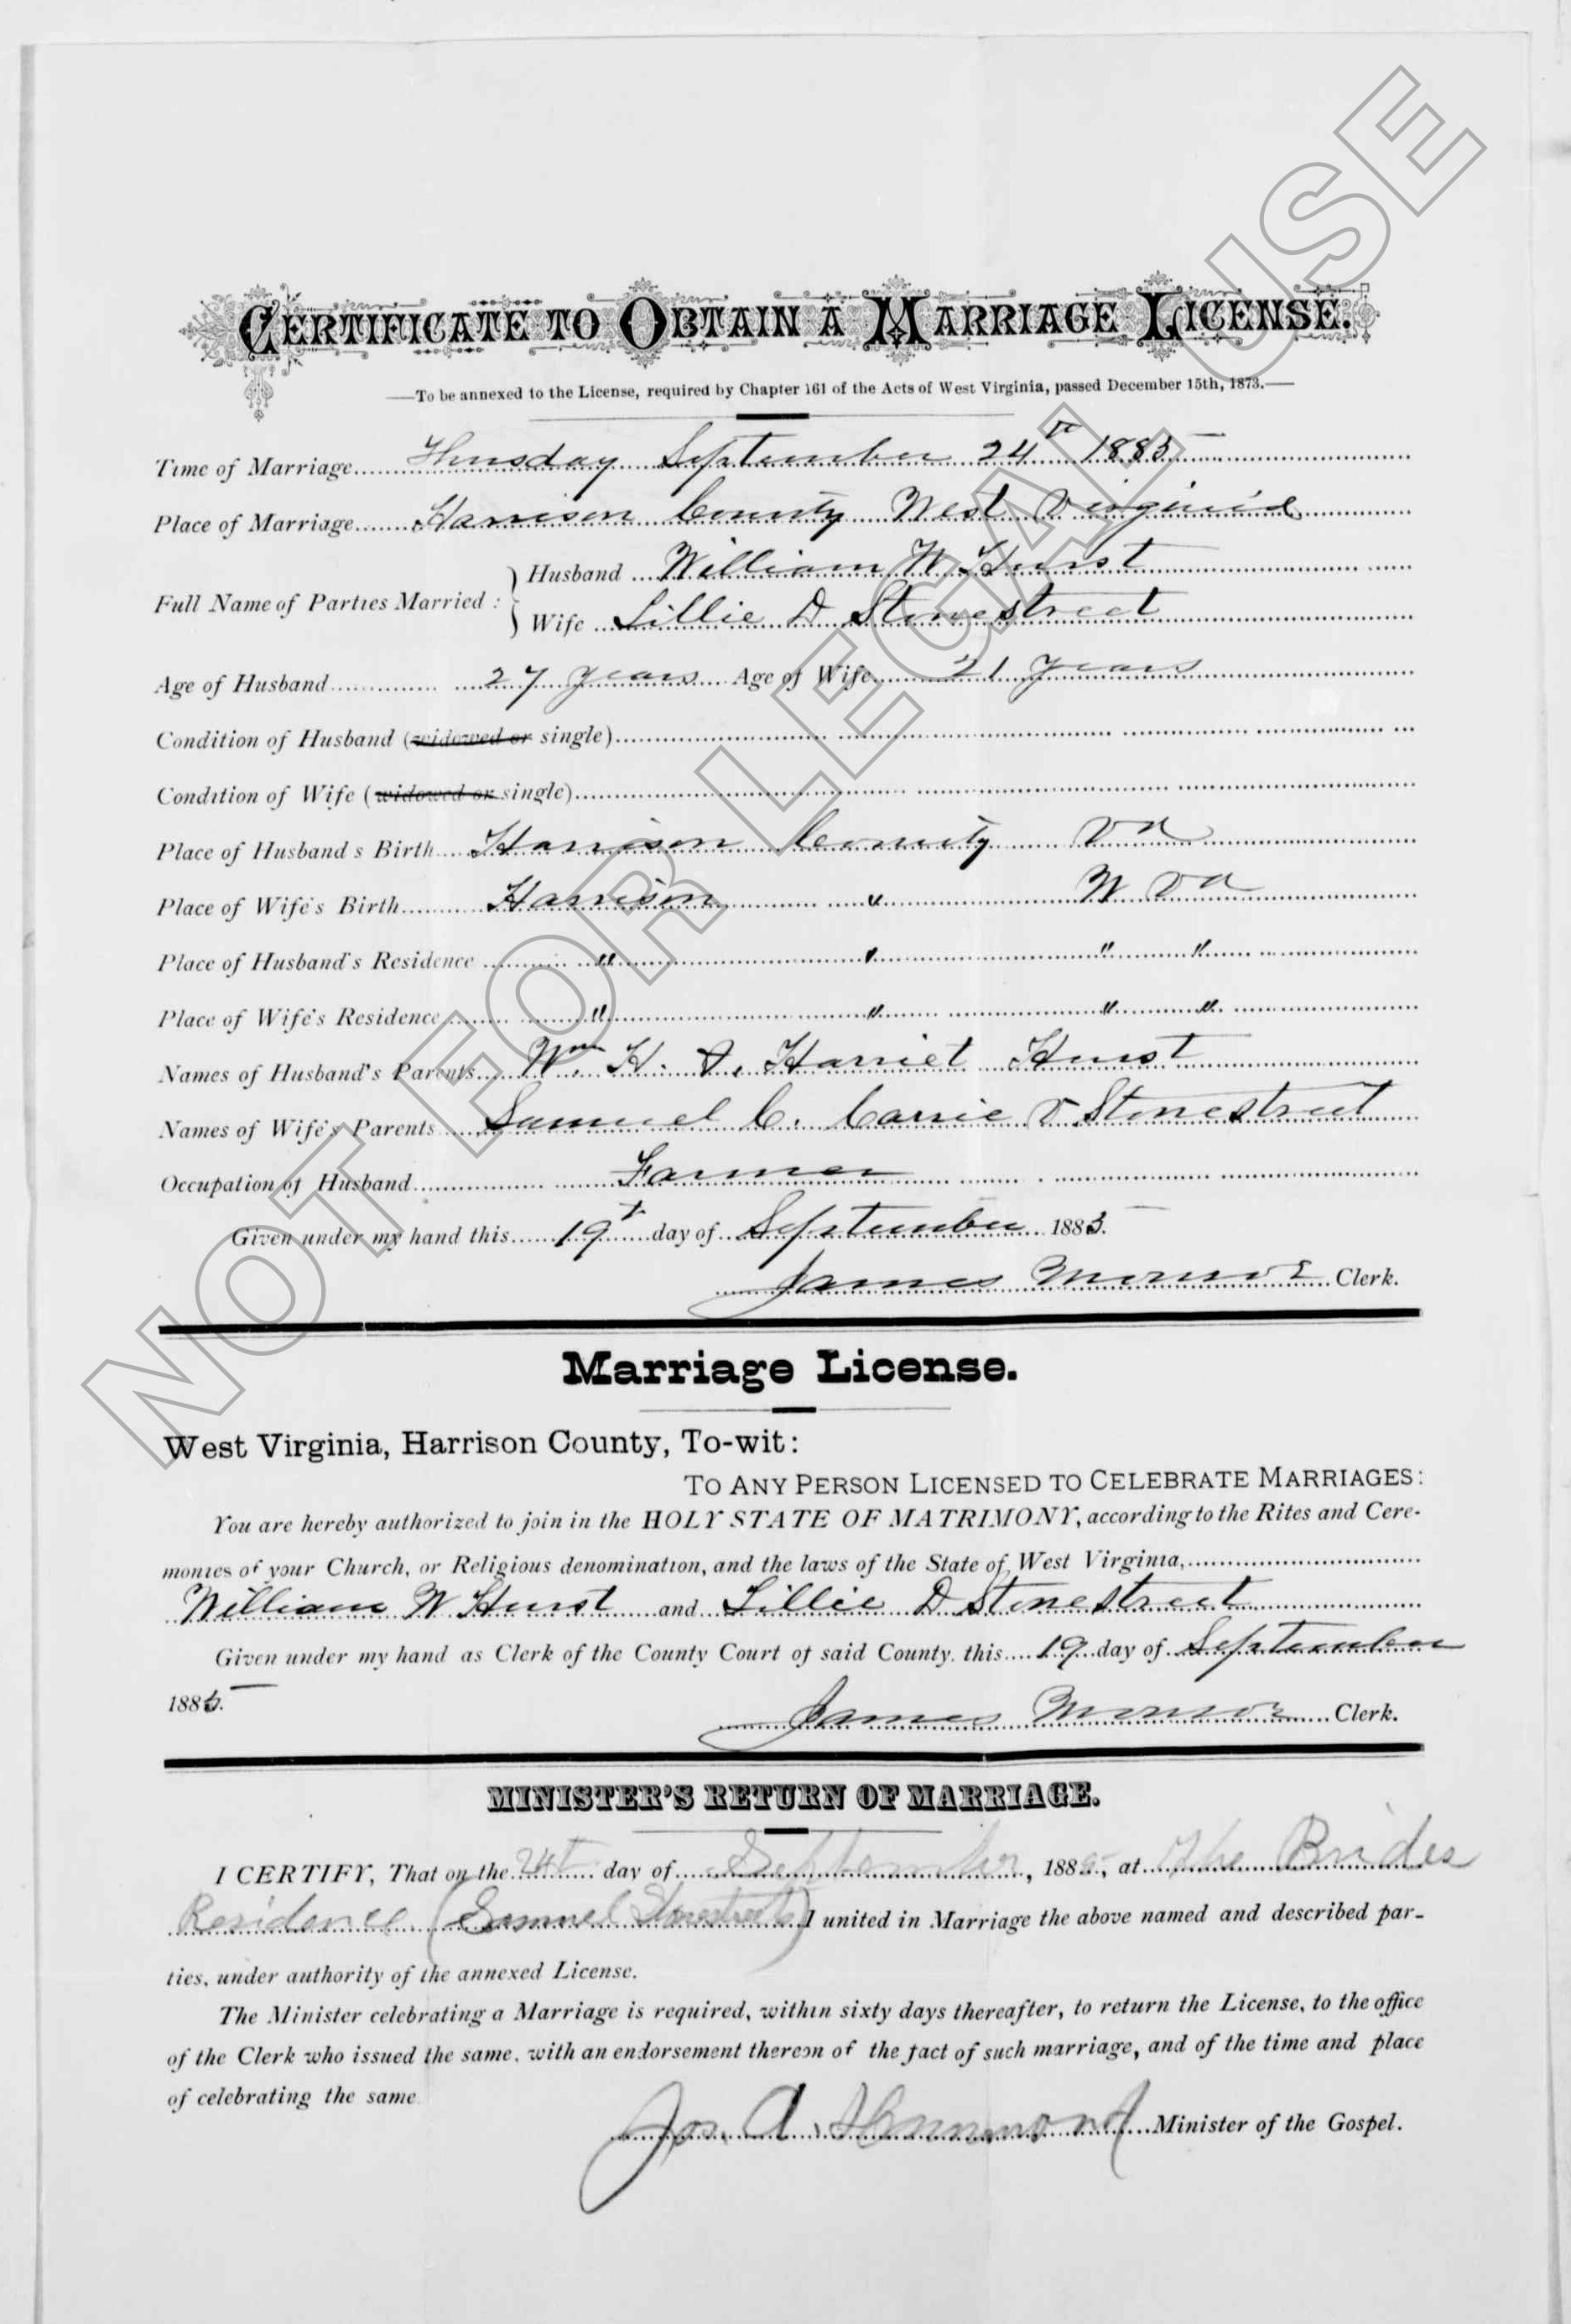 CERTIFICATE TO OBTAIN A MARRIAGE LICENSE.
—To be annexed to the License, required by Chapter 161 of the Acts of West Virginia, passed December 15th, 1873.—
Time of Marriage Thursday September 24th 1885
Place of Marriage Harrison County West Virginia
Full Name of Parties Married: Husband William W Hurst
Wife Lillie D Stonestreet
Age of Husband 27 years Age of Wife 21 years
Condition of Husband (widowed or single)
Condition of Wife (widowed or single)
Place of Husbands Birth Harrison County Va
Place of Wife's Birth Harrison " W Va
Place of Husband's Residence " " " "
Place of Wife's Residence " " " "
Names of Husband's Parents Wm. H. & Harriet Hurst
Names of Wife's Parents Samuel C. Carrie V Stonestreet
Occupation of Husband Farmer
Given under my hand this 19th day of September 1885.
James Monroe Clerk.
Marriage License.
West Virginia, Harrison County, To-wit:
TO ANY PERSON LICENSED TO CELEBRATE MARRIAGES:
You are hereby authorized to join in the HOLY STATE OF MATRIMONY, according to the Rites and Cere-
monies of your Church, or Religious denomination, and the laws of the State of West Virginia,
William W Hurst and Lillie D Stonestreet
Given under my hand as Clerk of the County Court of said County, this 19 day of September
1885.
James Monroe Clerk.
MINISTER'S RETURN OF MARRIAGE.
I CERTIFY, That on the 24th day of September, 1885, at The Brides
Residence (Samuel Stonestreets) I united in Marriage the above named and described par-
ties, under authority of the annexed License.
The Minister celebrating a Marriage is required, within sixty days thereafter, to return the License, to the office
of the Clerk who issued the same, with an endorsement thereon of the fact of such marriage, and of the time and place
of celebrating the same
Jos. A. Hammond Minister of the Gospel.
NOT FOR LEGAL USE